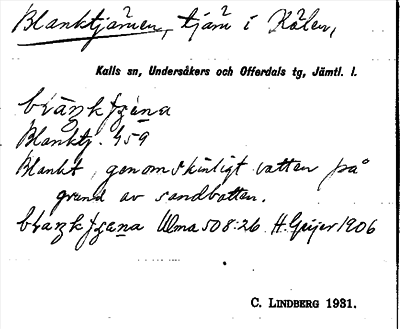 Blanktjärnen, tjärn i Kölen,
Kalls sn, Undersåkers och Offerdals tg, Jämtl. l.
Blanktj. 459
Blankt, genomskinligt vatten på
grund av sandbotten.
Ulma 508:26 H. Geijer 1906
C. LINDBERG 1931.